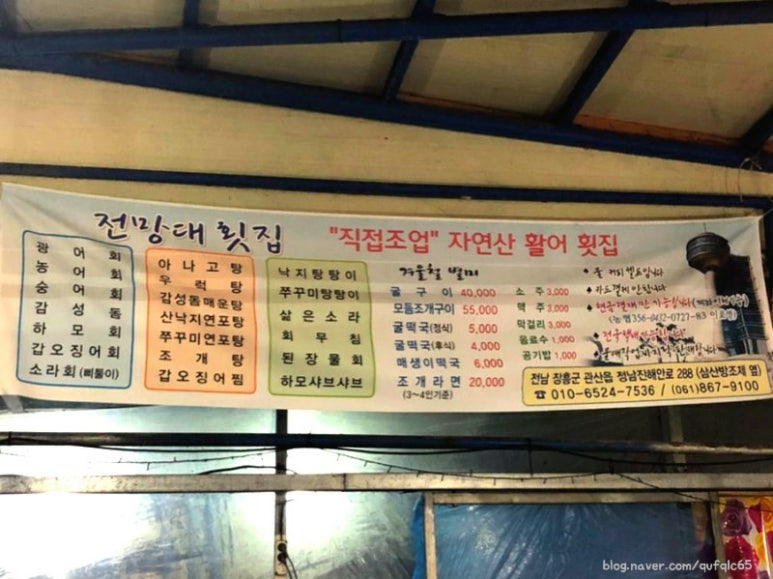 전망대 횟집
"직접조업" 자연산 활어 횟집
광어회
농어회
숭어회
감성돔
하모회
갑오징어회
소라회 (삐뚤이)
아나고탕
우럭탕
감성돔매운탕
산낙지연포탕
쭈꾸미연포탕
조개탕
갑오징어찜
낙지탕탕이
쭈꾸미탕탕이
삶은소라
회무침
된장물회
하모샤브샤브
겨울철 별미
굴구이 40,000
모둠조개구이 55,000
굴떡국(정식) 5,000
굴떡국(후식) 4,000
매생이떡국 6,000
조개라면 20,000
(3~4인기준)
소주 3,000
맥주 3,000
막걸리 3,000
음료수 1,000
공기밥 1,000
물 커피 셀프입니다
카드결제 안됩니다
현금결제만 가능합니다
전남 장흥군 관산읍 정남진해안로 288 (삼산방조제 옆)
☎ 010-6524-7536 / (061)867-9100
blog.naver.com/qufqlc65